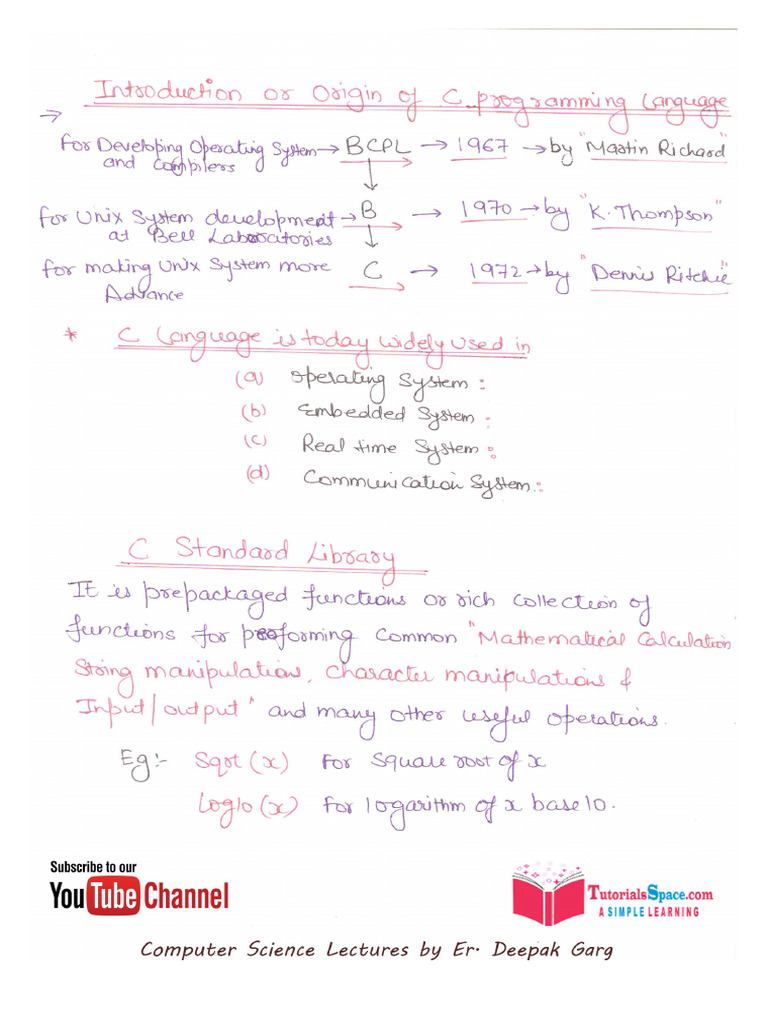 Introduction or Origin of C programming Language
→
for Developing Operating System → BCPL → 1967 → by "Martin Richard"
and compilers
↓
for Unix System development → B → 1970 → by "K. Thompson"
at Bell Laboratories
↓
for making Unix System more C → 1972 → by "Dennis Ritchie"
Advance
* C Language is today widely used in
(a) Operating System :
(b) Embedded System :
(c) Real time System :
(d) Communication System :
C Standard Library
It is prepackaged functions or rich collection of
functions for performing common "Mathematical Calculation
String manipulation, character manipulations &
Input/output" and many other useful operations.
Eg:- Sqrt (x) for square root of x
Log10 (x) for logarithm of x base 10.
Subscribe to our
YouTube Channel
TutorialsSpace.com
A SIMPLE LEARNING
Computer Science Lectures by Er. Deepak Garg